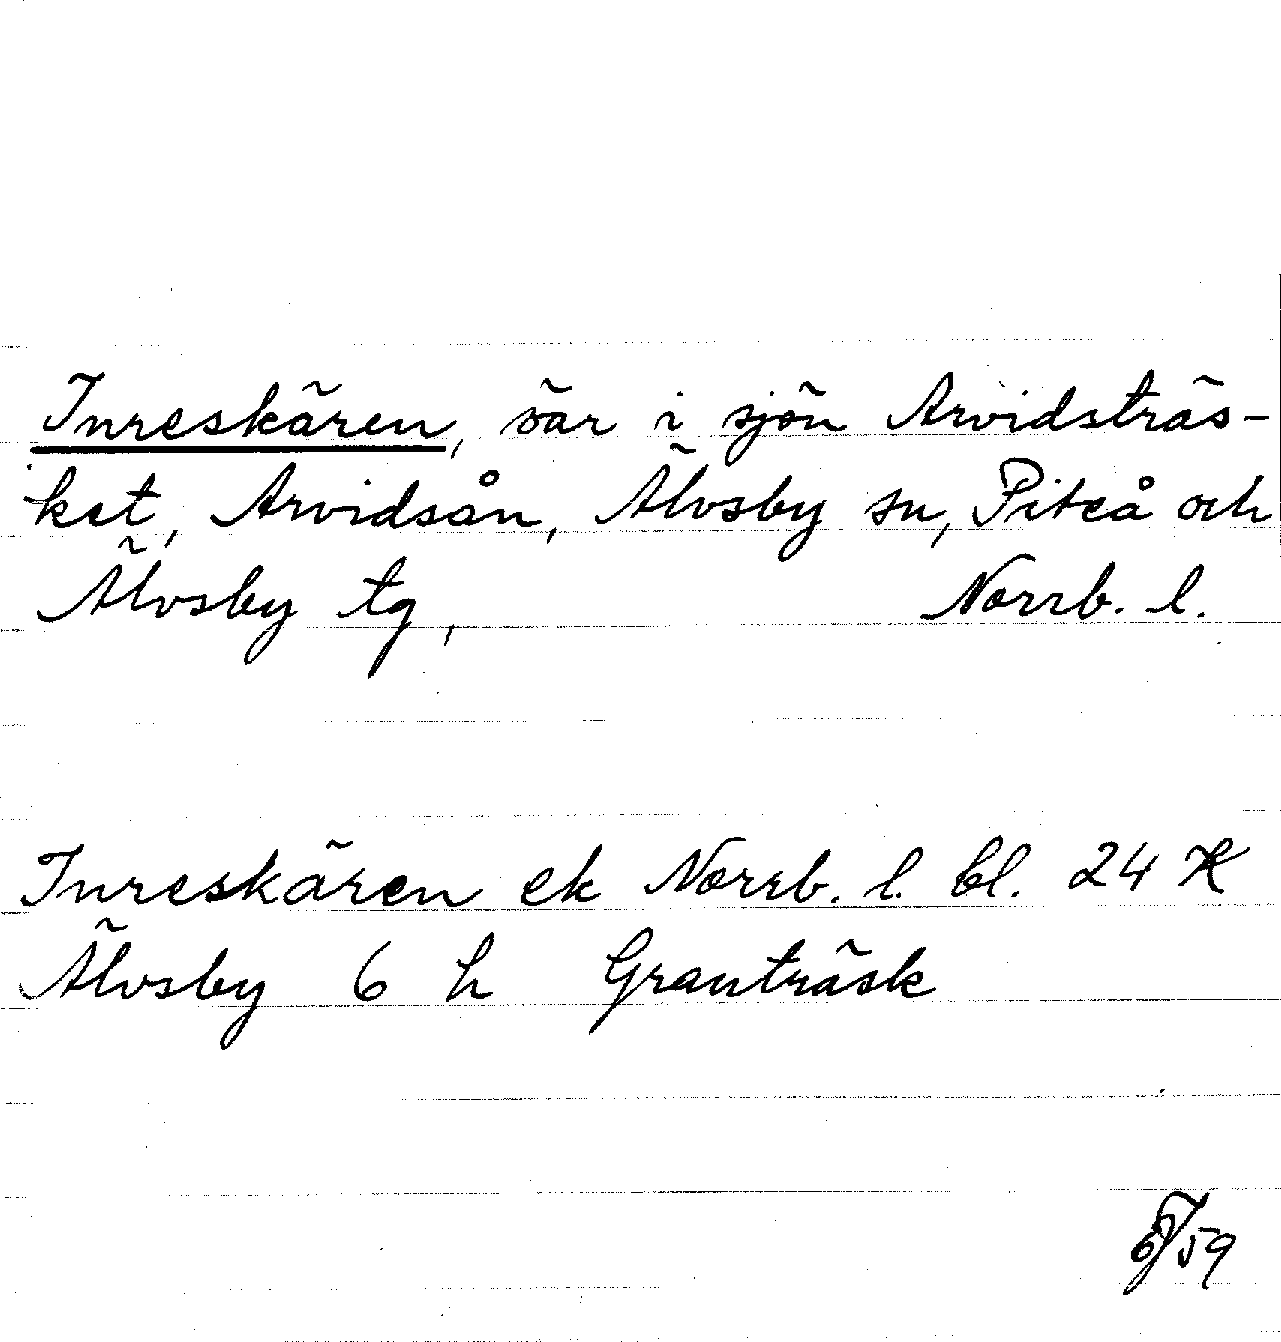 Inreskären, öar i sjön Arvidsträs-
ket, Arvidsån, Älvsby sn, Piteå och
Älvsby tg, Norrb. l.
Inreskären ek Norrb. l. bl. 24 K
Älvsby 6 h Granträsk
59